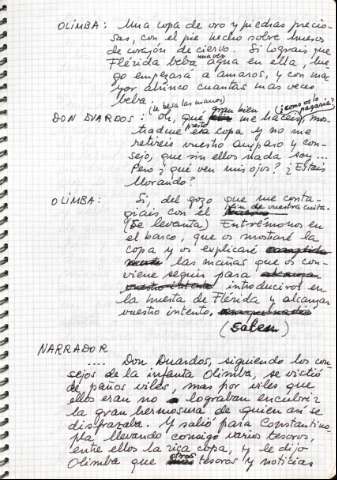 OLIMBA: Una copa de oro y piedras precio-
sas, con el pie hecho sobre hueso
de corazón de ciervo. Si lograis que
Flérida beba una vez agua en ella, lue-
go empezara a amaros, y con ma-
yor ahinco cuantas mas veces
beba.
(le besa las manos)
DON DUARDOS: Oh, que gran bien me haceis, ¡como os lo pagaria! mos-
tradme presto esa copa y no me
retireis vuestro amparo y con-
sejo, que sin ellos nada soy...
Pero ¿qué ven mis ojos? ¿Estais
llorando?
OLIMBA: Si, del gozo que me conta-
giais con el fin de vuestra cuita.
(Se levanta) Entrémonos en
el barco, que os mostraré la
copa y os explicaré
las mañas que os con-
viene seguir para
introduciros en
la huerta de Flérida y alcanzar
vuestro intento.
(salen)
NARRADOR
.... Don Duardos, siguiendo los con-
sejos de la infanta Olimba, se vistió
de paños viles, mas por viles que
ellos eran no lograban encubrir
la gran hermosura de quien asi se
disfrazaba. Y salió para Constantino-
pla, llevando consigo varios tesoros,
entre ellos la rica copa, y le dijo
Olimba que otros tesoros y noticias